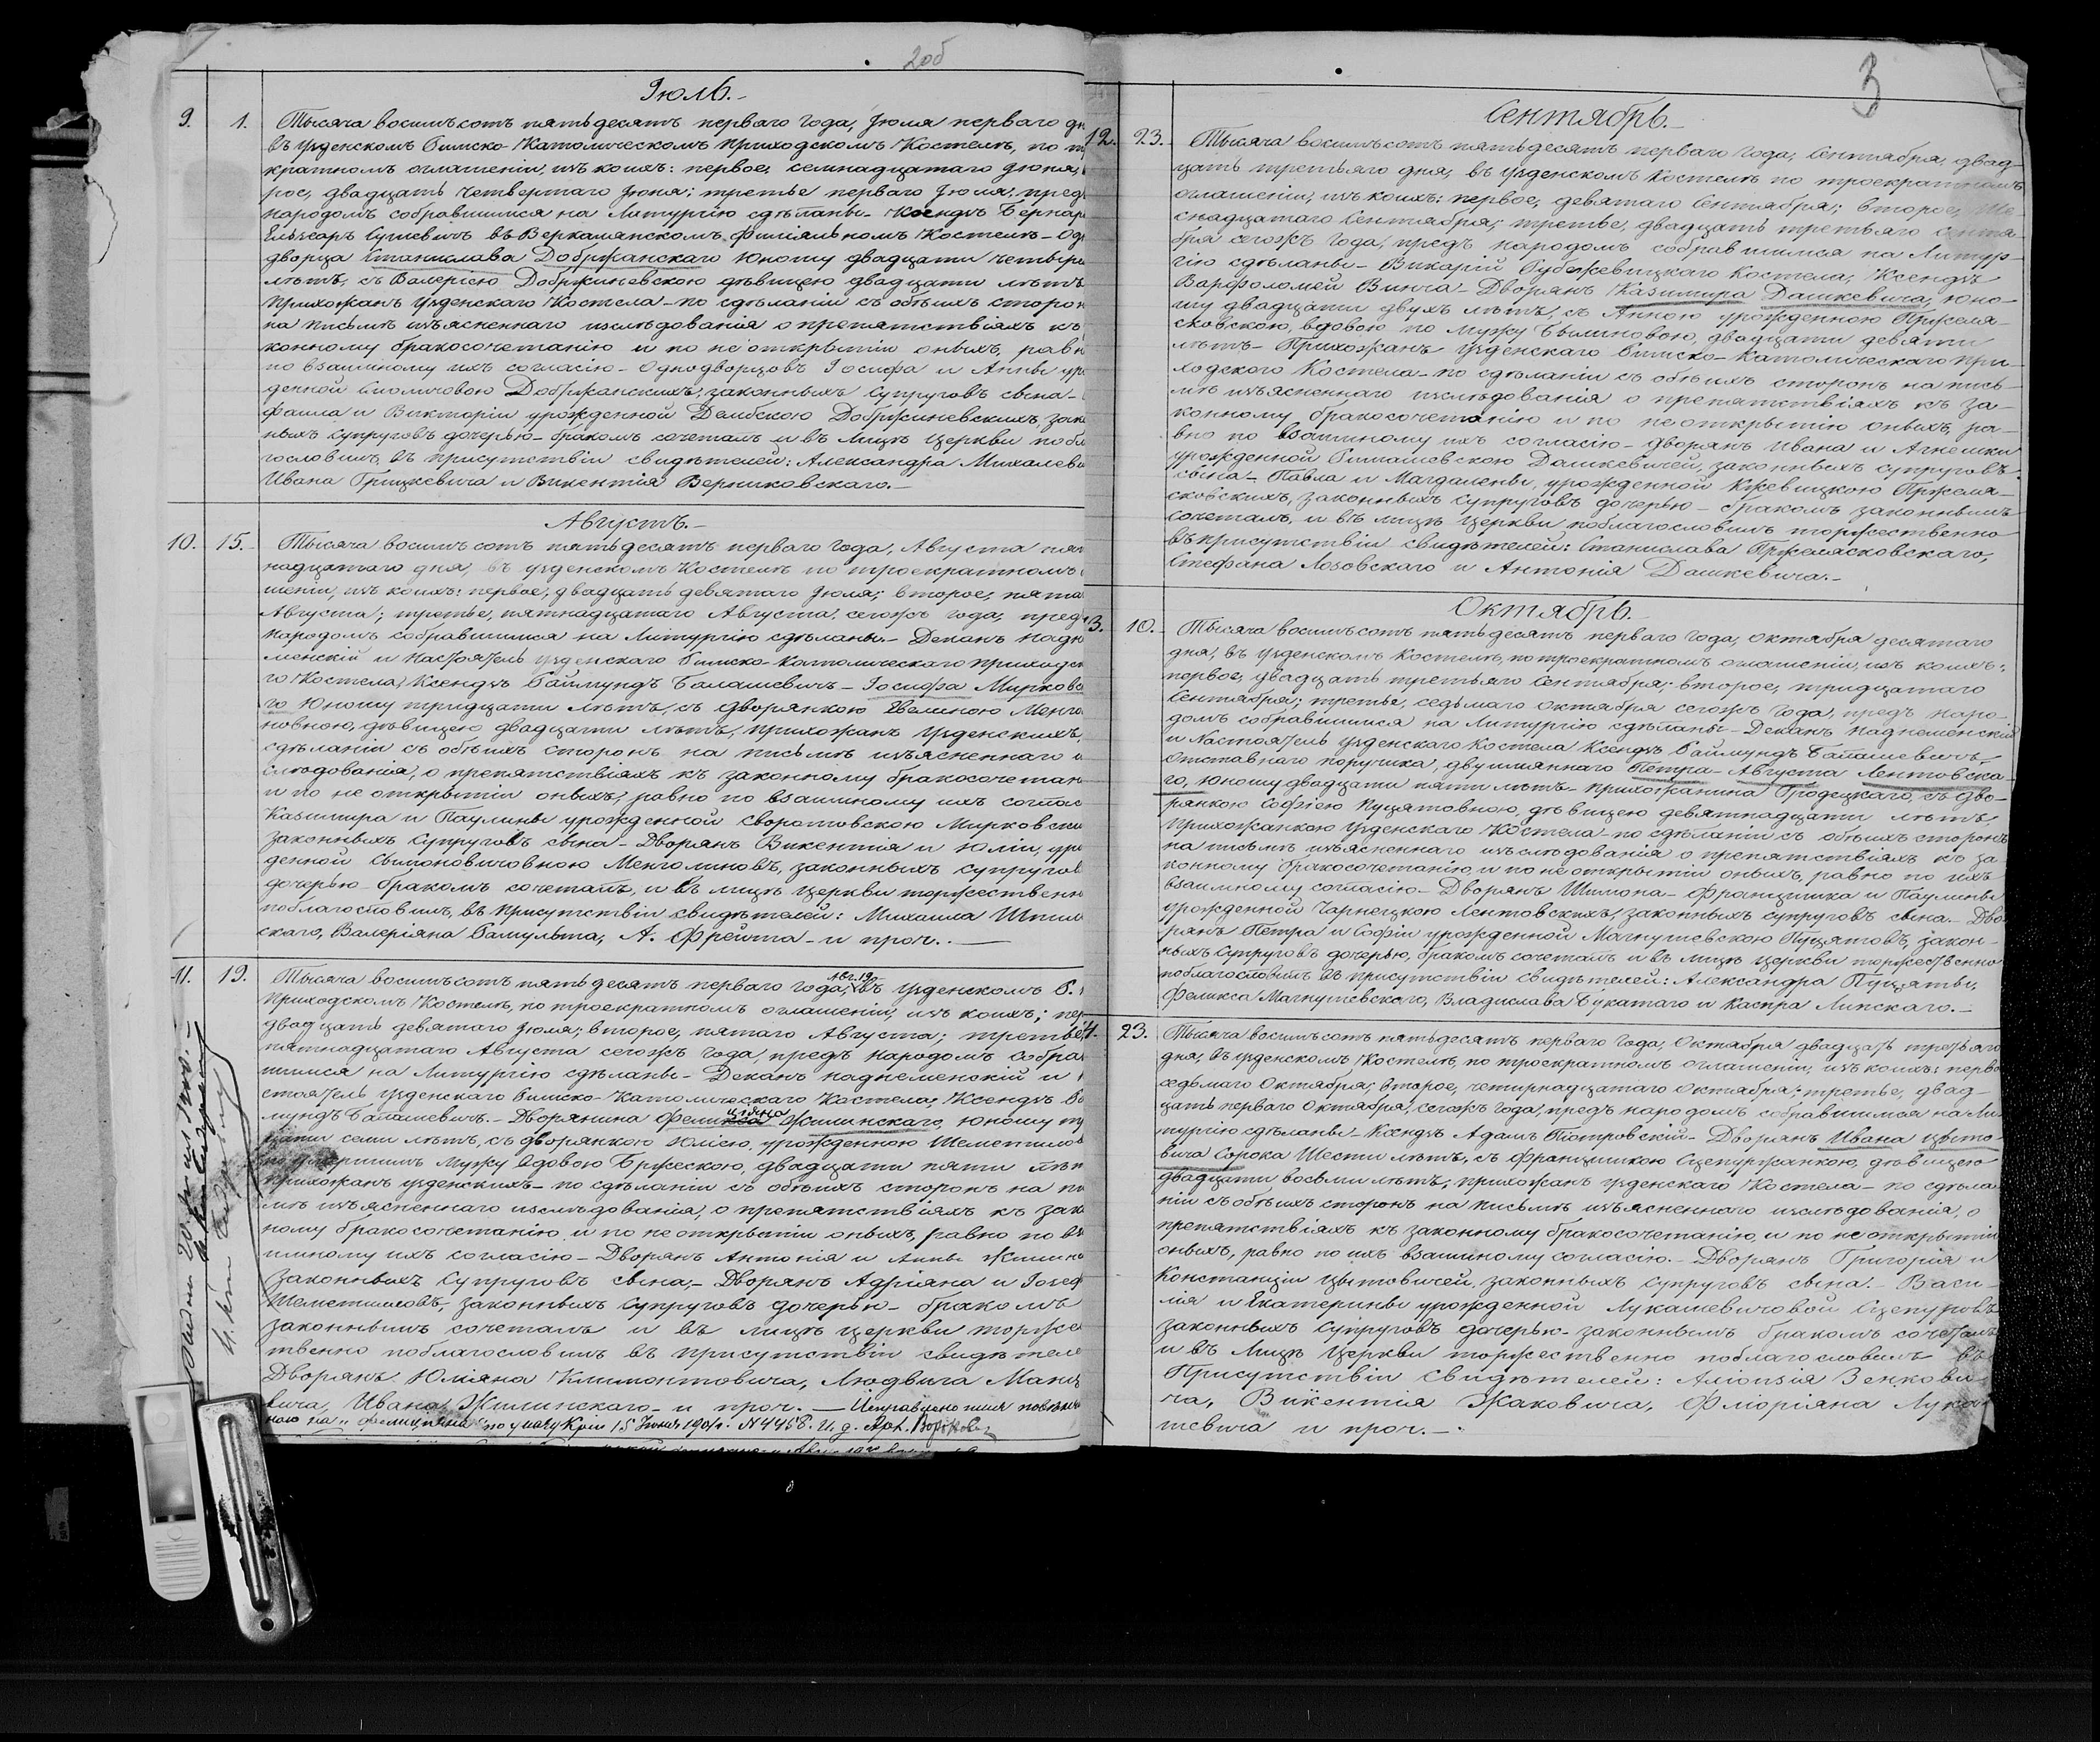 2об
Іюль.-
9. 1. Тысяча восимъсотъ пятьдесятъ перваго года, Іюля перваго дн
въ Узденскомъ Римско-Католическомъ приходскомъ Костелѣ, по т
кратномъ оглашеніи, изъ коихъ: первое, семнадцатаго Іюня,
рое, двадцать четвертаго Іюня; третье перваго Іюля, предъ
народомъ собравшимся на Литургію сдѣланы - Ксендзъ Бернар
Ельзеаръ Сушевичъ въ Веркалянскомъ филіяльномъ Костелѣ - Од
дворца Станислава Добржанскаго Юношу двадцати четыре
лѣтъ, съ Валеріею Добржиневскою дѣвицею двадцати лѣтъ
прихожанъ Узденскаго Костела - по сдѣланіи съ обѣихъ сторон
на письмѣ изъясненнаго изслѣдованія о препятствіяхъ къ
конному бракосочетанію и по не открытіи оныхъ, равн
по взаимному ихъ согласію - Однодворцовъ Іосифа и Анны ур
денной Смоличовою Добржанскихъ, законныхъ Супруговъ сына -
фаила и Викторіи урожденной Дембскою Добржиневскихъ, зако
ныхъ супруговъ дочерью - бракомъ сочеталъ и въ Лицѣ Церкви побл
гословилъ, въ присутствіи свидѣтелей: Александра Михалеви
Ивана Грицкевича и Викентія Верниковскаго.-
Августъ.-
10. 15. Тысяча восимъсотъ пятьдесятъ перваго года, Августа пят
надцатаго дня, въ Узденскомъ Костелѣ по троекратномъ
шеніи, изъ коихъ: первое, двадцать девятаго Іюля; второе, пята
Августа; третье, пятнадцатаго Августа, сегожъ года, предъ
народомъ собравшимся на Литургію сдѣланы - Деканъ Надне
менскій и Настоятель Узденскаго Римско-Католическаго приходск
го Костела, Ксендзъ Раймундъ Балашевичъ - Іосифа Мирковс
го Юношу тридцати лѣтъ, съ Дворянкою Евелиною Менго
новною, дѣвицею двадцати лѣтъ, прихожанъ Узденскихъ,
сдѣланіи съ обѣихъ сторонъ на письмѣ изъясненнаго и
слѣдованія, о препятствіяхъ къ законному бракосочетан
и по не открытіи оныхъ, равно по взаимному ихъ соглас
Казимира и Паулины урожденной Своротовскою Мирковски
законныхъ Супруговъ сына - Дворянъ Викентія и Юліи, уро
денной Сымоновичовною Менголиновъ, законныхъ супругов
дочерью - бракомъ сочеталъ, и въ лицѣ Церкви торжественн
поблагословилъ, въ присутствіи свидѣтелей: Михаила Шпил
скаго, Валеріяна Рамульта, А. Фрейта - и проч..
11. 19. Тысяча восимъсотъ пятьдесятъ перваго года, Авг. 19 въ Узденскомъ Р.
приходскомъ Костелѣ, по троекратномъ оглашеніи, изъ коихъ; пер
двадцать девятаго Іюля; второе, пятаго Августа; третье,
пятнадцатаго Августа сегожъ года, предъ народомъ собра
шимся на Литургію сдѣланы - Деканъ наднеменскій и
стоятель Узденскаго Римско-Католическаго Костела, Ксендзъ Ра
мундъ Балашевичъ.- Дворянина Феликса ціяна Жилинскаго, Юношу
цати семи лѣтъ, съ дворянкою Юліею, урожденною Шеметилов
по умершимъ мужу вдовою Бржескою, двадцати пяти лѣт
прихожанъ Узденскихъ - по сдѣланіи съ обѣихъ сторонъ на пи
мѣ изъясненнаго изслѣдованія, о препятствіяхъ къ зак
ному бракосочетанію и по не открытіи оныхъ, равно по вз
имному ихъ согласію - Дворянъ Антонія и Анны Жилинс
законныхъ Супруговъ сына,- Дворянъ Адріяна и Іозеф
Шеметиловъ, законныхъ Супруговъ дочерью - бракомъ
законнымъ сочеталъ и въ лицѣ Церкви торже
твенно поблагословилъ въ присутствіи свидѣтеле
Дворянъ Юліяна Климонтовича, Людвига Манц
вича, Ивана Жилинскаго - и проч. -
по указу Кріи 15 Іюня 1904г. N 4458. И. д.
3
Сентябрь.-
12. 23. Тысяча восимъсотъ пятьдесятъ перваго года, Сентября, двад-
цать третьяго дня, въ Узденскомъ Костелѣ по троекратномъ
оглашеніи, изъ коихъ: первое, девятаго Сентября; второе, ше-
снадцатаго Сентября; третье, двадцать третьяго Сентя-
бря сегожъ года, предъ народомъ собравшимся на Литур-
гію сдѣланы - Викарій Рубежевицкаго Костела, Ксендзъ
Варфоломей Винча - Дворянъ Казимира Дашкевича, юно-
шу двадцати двухъ лѣтъ, съ Анною урожденною Пржеля-
сковскою, вдовою по мужу Былиновою, двадцати девяти
лѣтъ - Прихожанъ Узденскаго Римско-Католическаго при-
ходскаго Костела - по сдѣланіи съ обѣихъ сторонъ на пись-
мѣ изъясненнаго изслѣдованія о препятствіяхъ къ за-
конному бракосочетанію и по не открытію оныхъ, ра-
вно по взаимному ихъ согласію - Дворянъ Ивана и Агнешки
урожденной Римашевскою Дашкевичей, законныхъ супруговъ
сына - Павла и Магдалены, урожденной Кжевицкою Пржеля-
сковскихъ, законныхъ супруговъ дочерью - бракомъ законнымъ
сочеталъ, и въ лицѣ Церкви поблагословилъ торжественно
въ присутствіи свидѣтелей: Станислава Пржелясковскаго,
Стефана Лозовскаго и Антонія Дашкевича.-
Октябрь.-
3. 10. Тысяча восимъсотъ пятьдесятъ перваго года, Октября десятаго
дня, въ Узденскомъ Костелѣ, по троекратномъ оглашеніи, изъ коихъ:
первое, двадцать третьяго Сентября; второе, тридцатаго
Сентября; третье, седьмаго Октября сегожъ года, предъ наро-
домъ собравшимся на Литургію сдѣланы - Деканъ Наднеменскій
и Настоятель Узденскаго Костела Ксендзъ Раймундъ Балашевичъ,
Отставнаго поручика, двуимяннаго Петра-Августа Лентовска-
го, Юношу двадцати пяти лѣтъ - прихожанина Гродецкаго, съ Дво-
рянкою Софіею Пуцятовною, дѣвицею девятнадцати лѣтъ,
прихожанкою Узденскаго Костела - по сдѣланіи съ обѣихъ сторонъ
на письмѣ изъясненнаго изслѣдованія о препятствіяхъ къ за-
конному бракосочетанію, и по не открытіи оныхъ, равно по ихъ
взаимному согласію - Дворянъ Шимона-Францишка и Паулины
урожденной Чарнецкою Лентовскихъ, законныхъ супруговъ сына - Дво-
рянъ Петра и Софіи урожденной Магнушевскою Пуцятовъ, закон-
ныхъ Супруговъ дочерью, бракомъ сочеталъ и въ лицѣ Церкви торжественно
поблагословилъ въ присутствіи свидѣтелей: Александра Пуцяты,
Феликса Магнушевскаго, Владислава Букатаго и Каспра Липскаго.-
4. 23. Тысяча восимъсотъ пятьдесятъ перваго года, Октября двадцать третьяго
дня, въ Узденскомъ Костелѣ, по троекратномъ оглашеніи, изъ коихъ: перво
седьмаго Октября; второе, четырнадцатаго Октября; третье, двад-
цать перваго Октября, сегожъ года, предъ народомъ собравшимся на Ли-
тургію сдѣланы - Ксендзъ Адамъ Піотровскій - Дворянъ Ивана Цыто-
вича Сорока Шести лѣтъ, съ Францишкою Сцепуржанкою, дѣвицею
двадцати восьми лѣтъ, прихожанъ Узденскаго Костела - по сдѣла
ніи съ обѣихъ сторонъ на письмѣ изъясненнаго изслѣдованія, о
препятствіяхъ къ законному бракосочетанію, и по не открытіи
оныхъ, равно по ихъ взаимному согласію.- Дворянъ Григорія и
Констанціи Цытовичей, законныхъ супруговъ сына.- Васи-
лія и Екатерины урожденной Лукашевичовой Сцепуровъ
законныхъ Супруговъ дочерью - законнымъ бракомъ сочеталъ
и въ Лицѣ Церкви торжественно поблагословилъ въ
Присутствіи Свидѣтелей: Алюизія Зенкови-
ча, Викентія Жаковича, Фліоріяна Лука-
шевича и проч.-